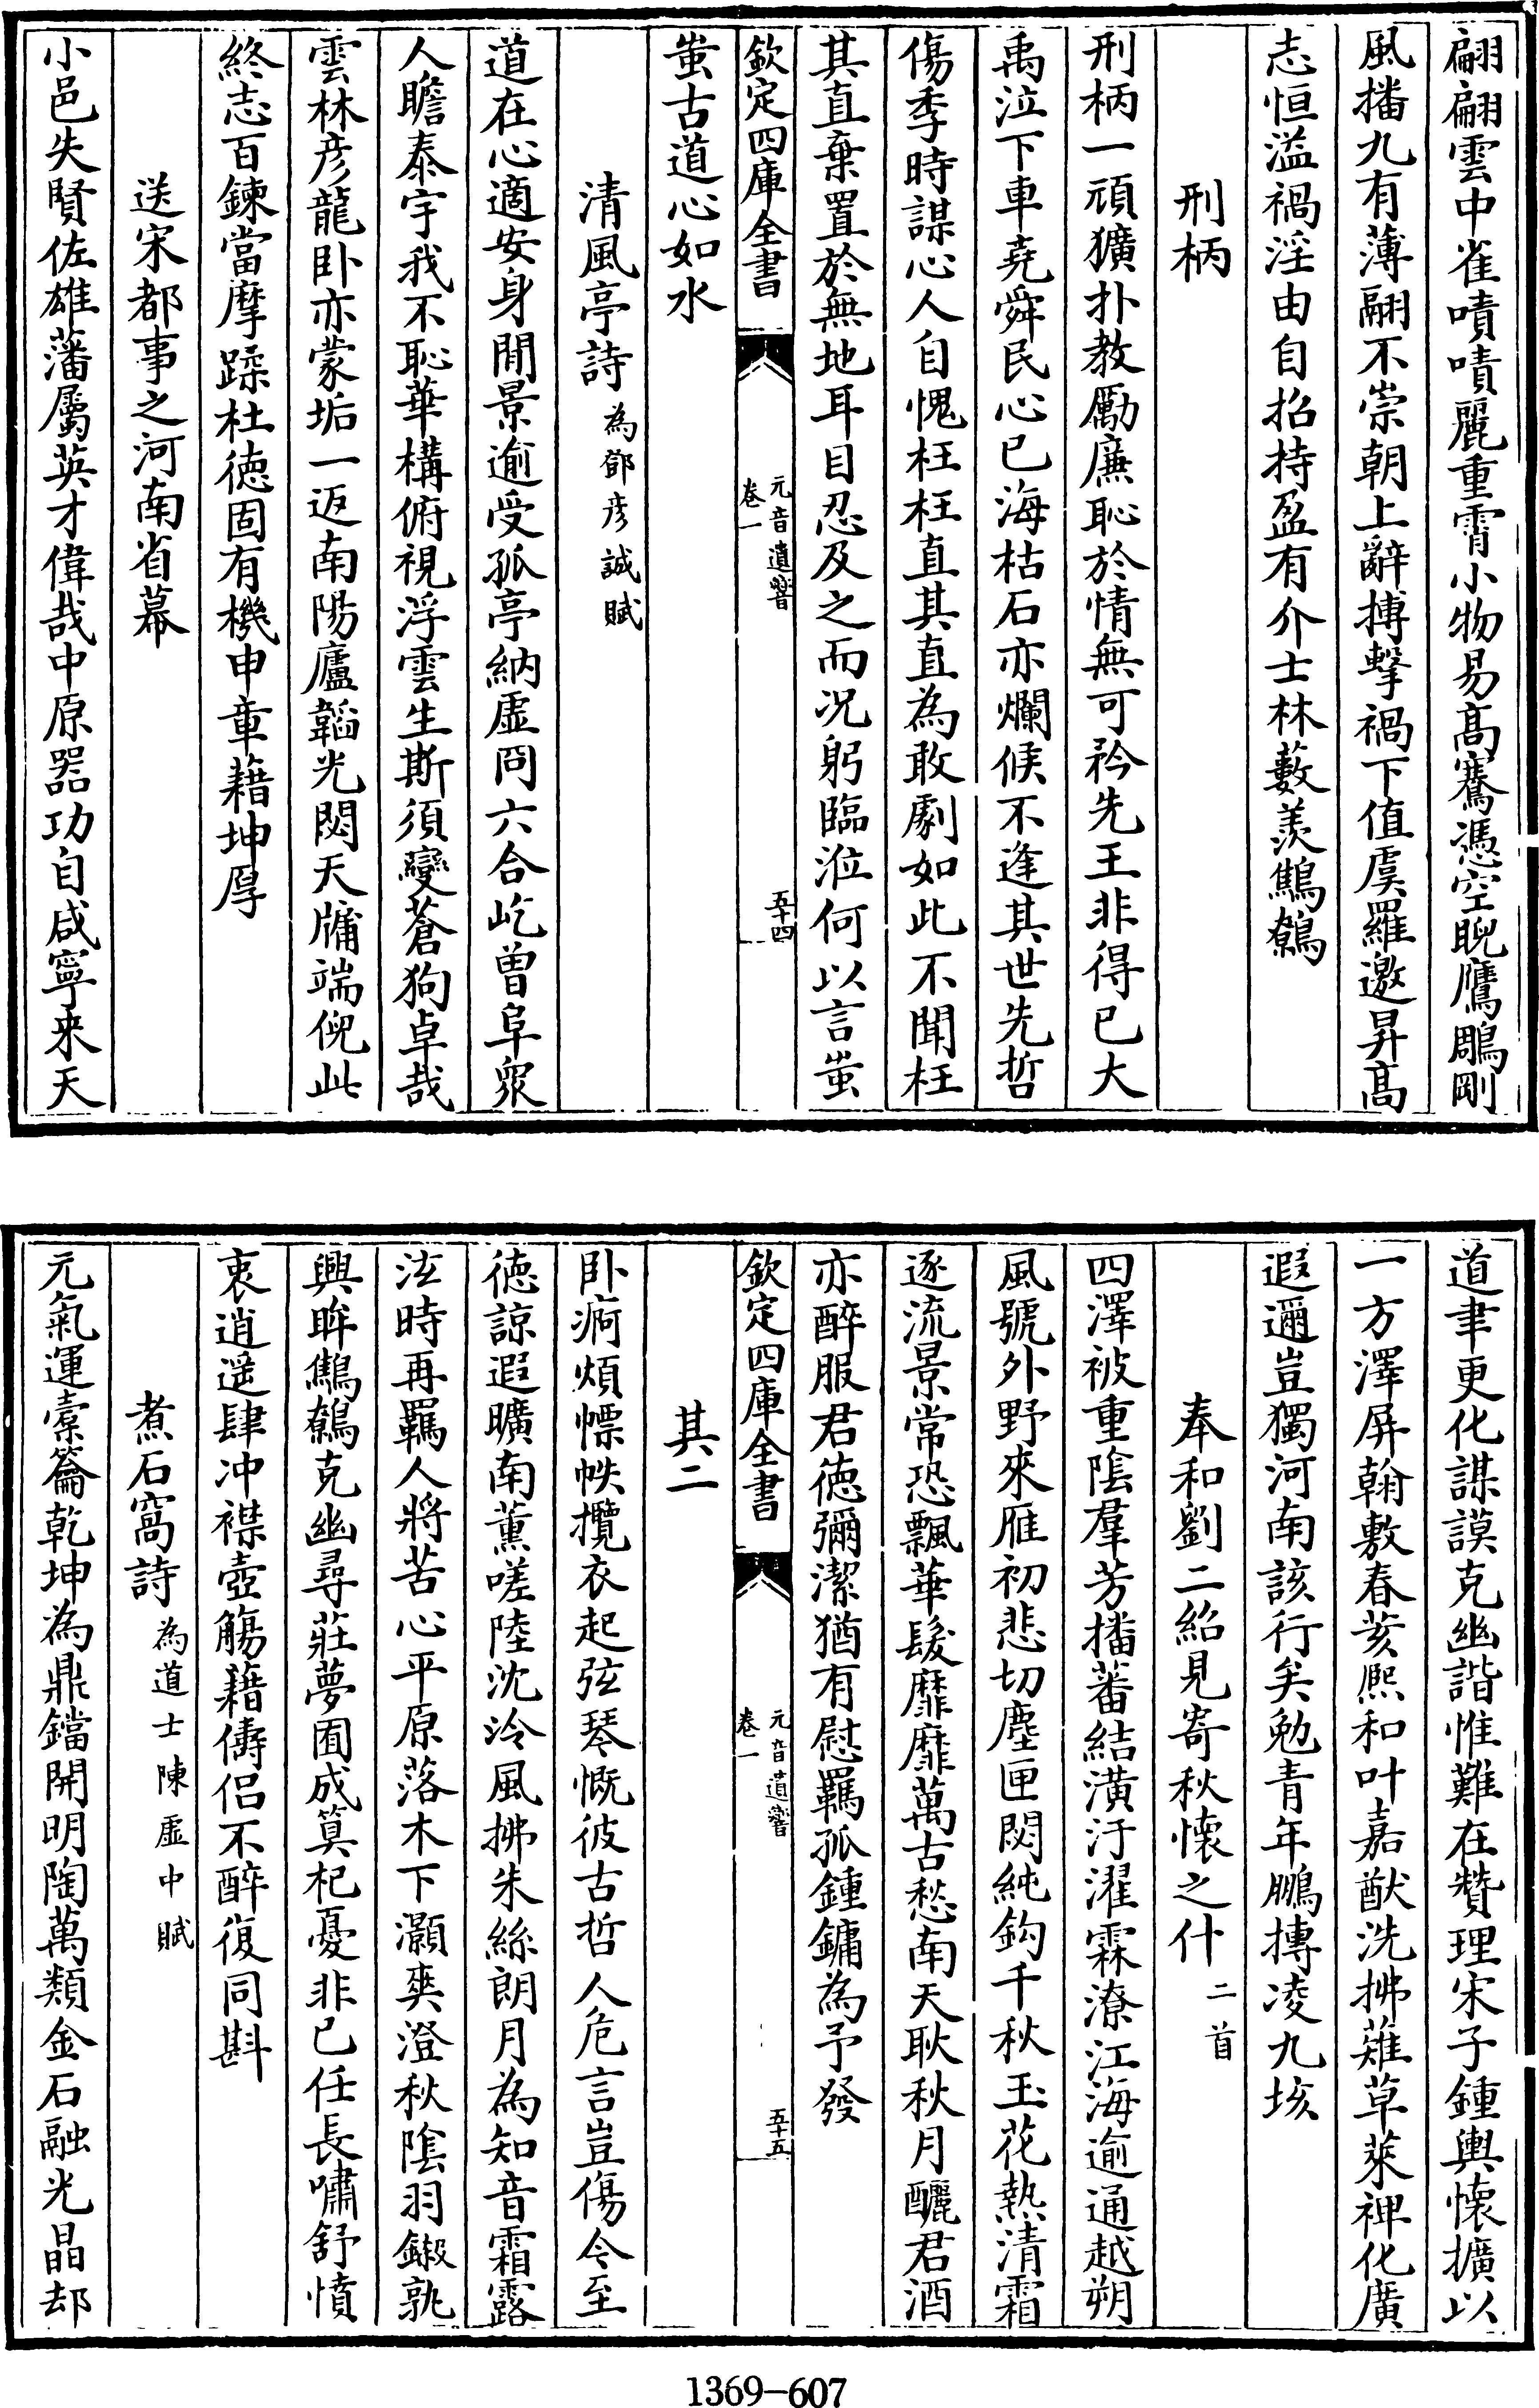 翩翩雲中雀嘖嘖麗重霄小物易高騫憑空睨鷹鵰剛
風播九有薄翮不崇朝上辭搏擊禍下值虞羅邀昇高
志恒溢禍淫由自招持盈有介士林藪羨鷦鷯
刑柄
刑柄一頑獷扑教勵廉恥於情無可矜先王非得已大
禹泣下車堯舜民心已海枯石亦爛候不逢其世先哲
傷季時謀心人自愧枉枉直其直為敢劇如此不聞枉
其直棄置於無地耳目忍及之而况躬臨涖何以言蚩
欽定四庫全書
元音遺響
卷一
五十四
蚩古道心如水
清風亭詩為鄧彦誠賦
道在心適安身閒景逾受孤亭納虛冏六合屹曾阜衆
人瞻泰宇我不恥華構俯視浮雲生斯須變蒼狗卓哉
雲林彦龍卧亦蒙垢一返南陽廬韜光閟天牖端倪此
終志百鍊當摩蹂杜德固有機申章籍坤厚
送宋都事之河南省幕
小邑失賢佐雄藩屬英才偉哉中原器功自咸寧来天
道聿更化謀謨克幽諧惟難在贊理宋子鍾輿懷擴以
一方澤屏翰敷春荄熈和叶嘉猷洗拂薙草萊裨化廣
遐邇豈獨河南該行矣勉青年鵬摶凌九垓
奉和劉二紹見寄秋懷之什二首
四澤被重陰羣芳播蕃結潢汙濯霖潦江海逾通越朔
風號外野來雁初悲切塵匣閟純鈎千秋玉花熱清霜
逐流景常恐飄華髮靡靡萬古愁南天耿秋月釃君酒
亦醉服君徳彌潔猶有慰羈孤鍾鏞為予發
欽定四庫全書
元音遺響
卷一
五十五
其二
卧痾煩慓帙攬衣起弦琴慨彼古哲人危言豈傷今至
徳諒遐曠南薰嗟陸沈泠風拂朱絲朗月為知音霜露
泫時再羈人將苦心平原落木下灝爽澄秋陰羽鎩孰
興眸鷦鷯克幽尋莊夢囿成筭杞憂非已任長嘯舒憤
衷逍遥肆冲襟壺觴藉儔侣不醉復同斟
煮石窩詩為道士陳虛中賦
元氣運橐籥乾坤為鼎鐺開明陶萬類金石融光晶却
1369-607